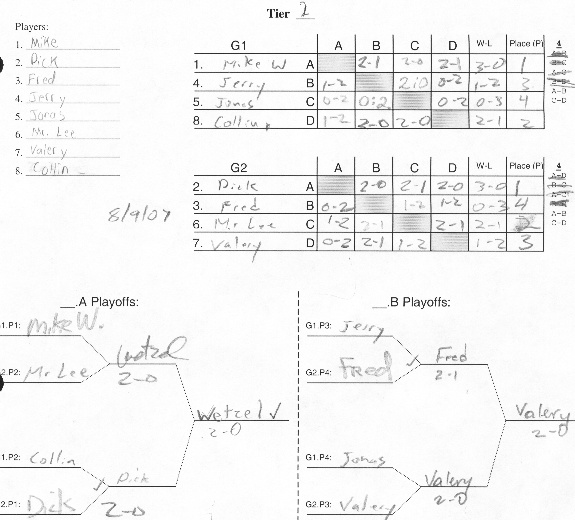 Tier 2
Players:
1. Mike
2. Dick
3. Fred
4. Jerry
5. Jonas
6. Mr. Lee
7. Valery
8. Collin
G1 A B C D W-L Place (P) 4
1. Mike W A 2-1 2-0 2-1 3-0 1
4. Jerry B 1-2 2:0 0-2 1-2 3
5. Jonas C 0-2 0:2 0-2 0-3 4 A-D
8. Collin D 1-2 2-0 2-0 2-1 2 C-D
G2 A B C D W-L Place (P) 4
2. Dick A 2-0 2-1 2-0 3-0 1
3. Fred B 0-2 1-2 1-2 0-3 4
6. Mr Lee C 1-2 2-1 2-1 2-1 2 C-D
7. Valery D 0-2 2-1 1-2 1-2 3
8/9/07
__.A Playoffs:
1.P1: Mike W.
2.P2: Mr Lee
Wetzel
2-0
Wetzel ✓
2-0
1.P2: Collin
2.P1: Dick
✓ Dick
2-0
__.B Playoffs:
G1.P3: Jerry
G2.P4: Freed
✓ Fred
2-1
Valery
2-0
G1.P4: Jonas
G2.P3: Valery
Valery
2-0